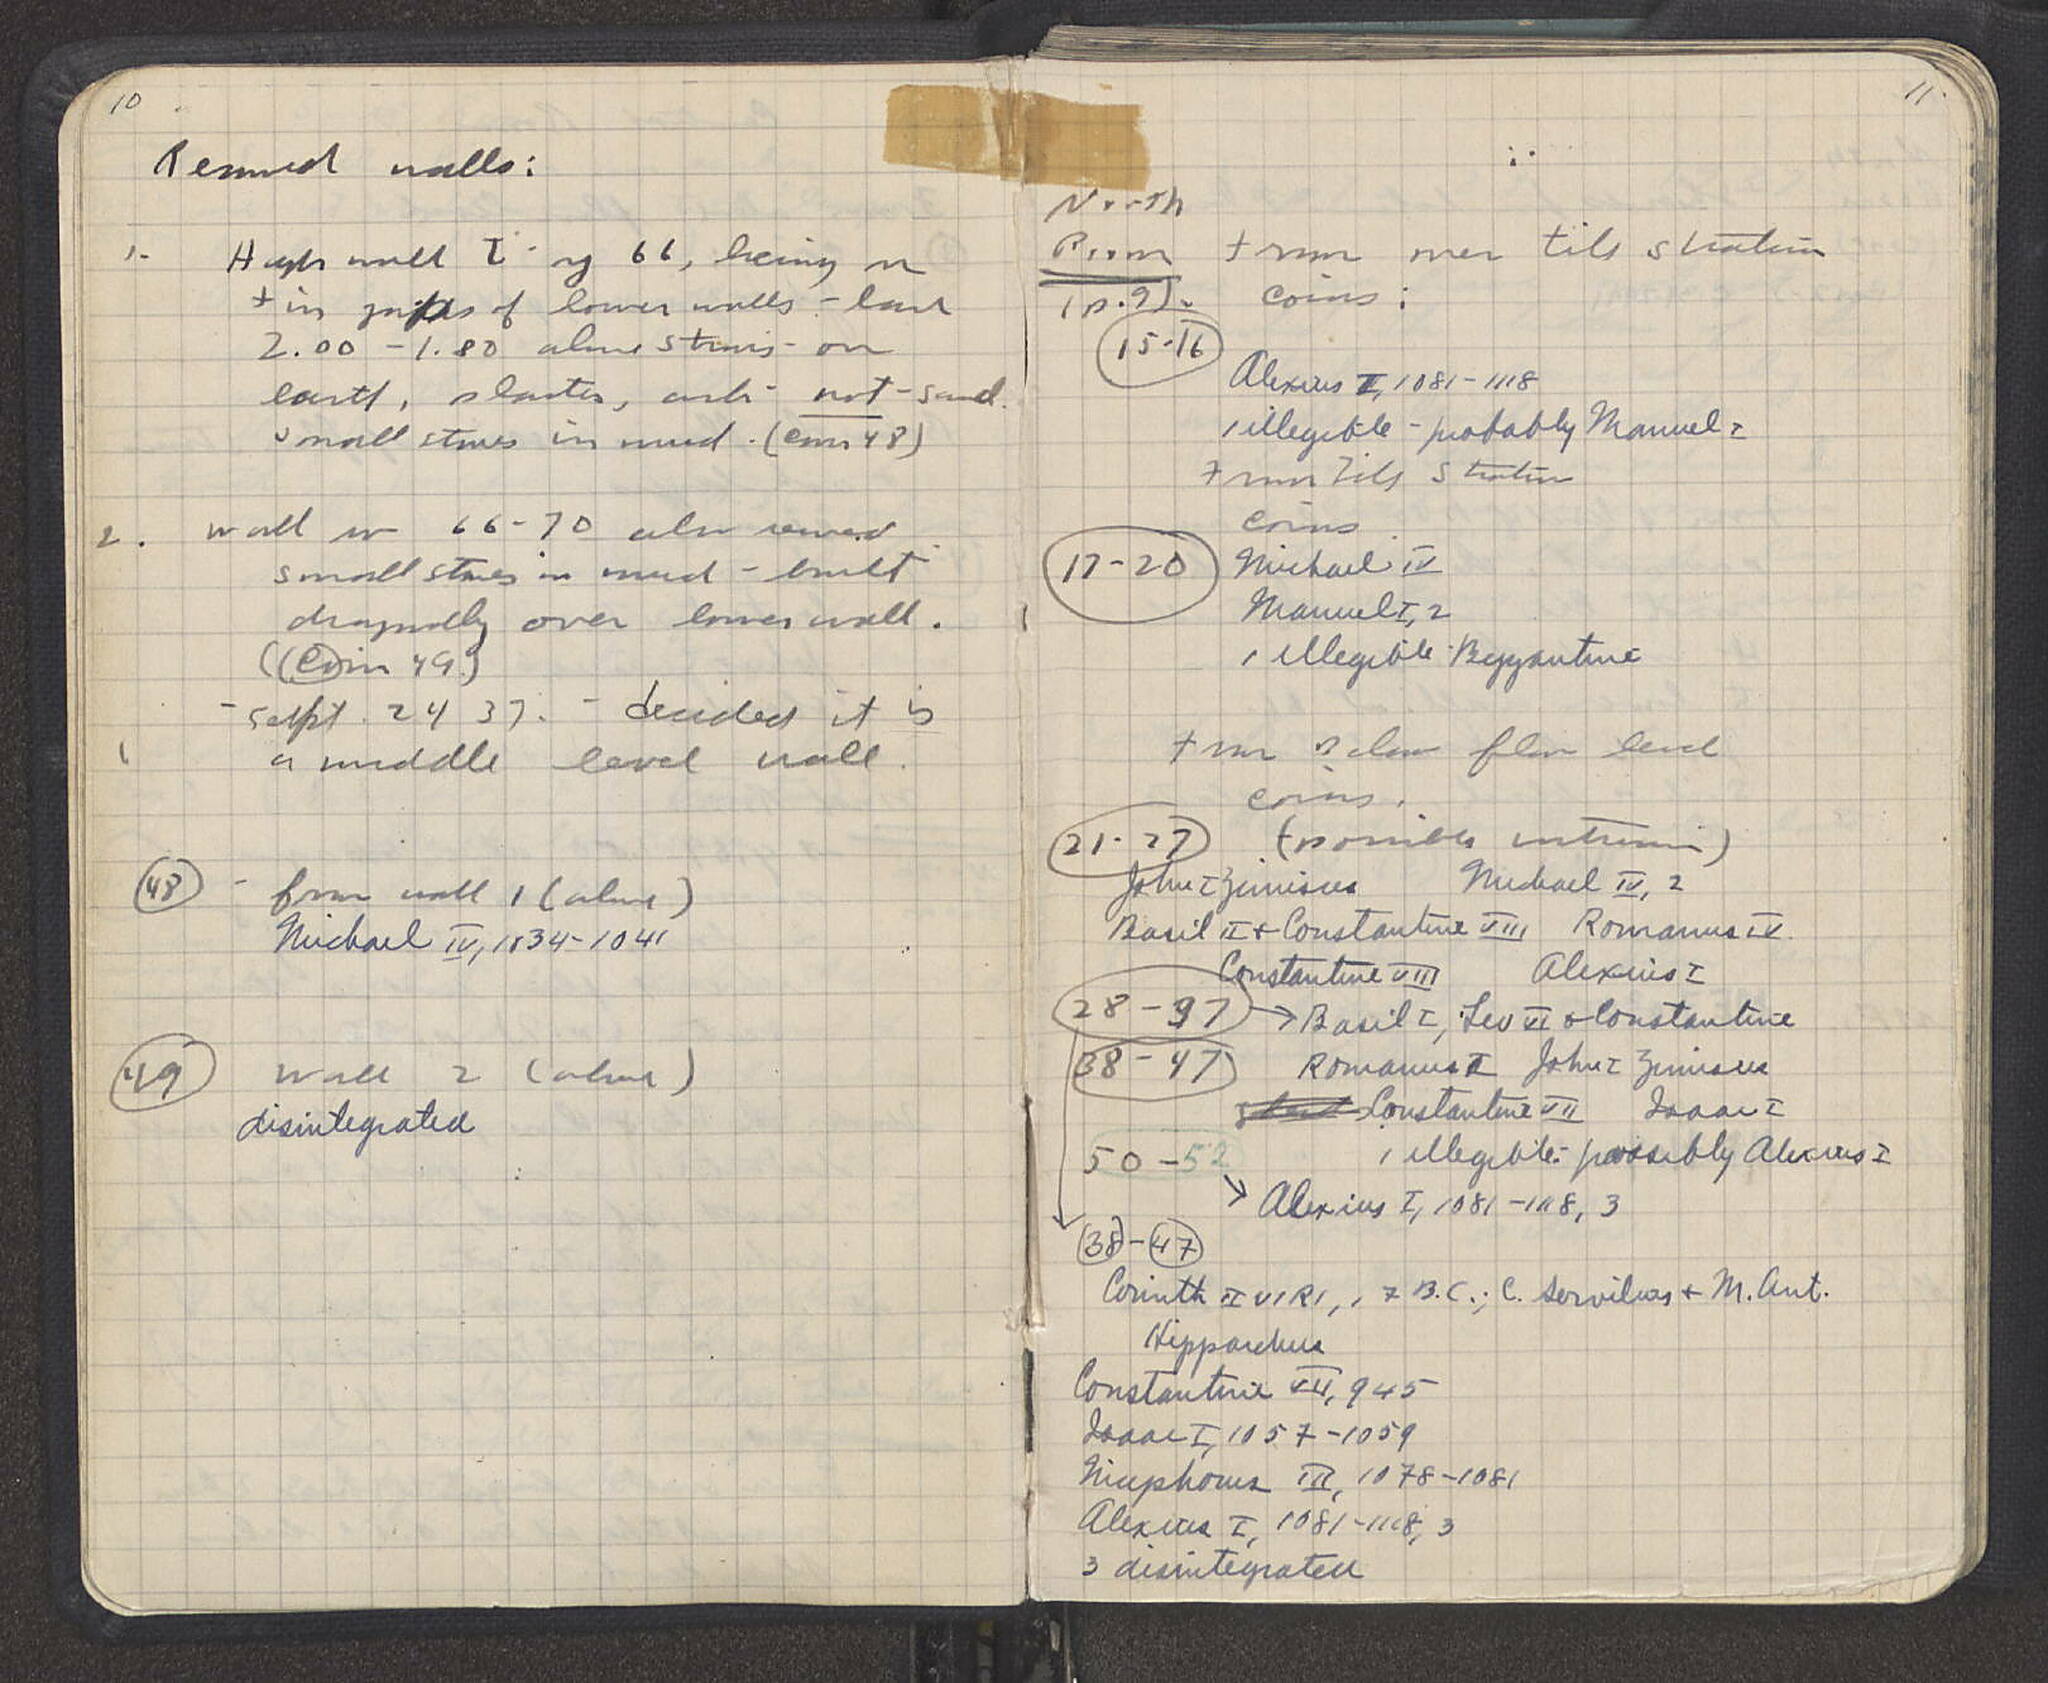 10
Removed walls:
1. High wall I of 66, being on
+ in gaps of lower walls - base
2.00 - 1.80 above strosis on
earth, plaster, ash - not - sand.
small stones in mud. (coin 48)
2. Wall in 66-70 also removed
small stones in mud - built
diagonally over lower wall.
(coin 49)
- Sept. 24 37. - decided it is
a middle level wall.
48 - from wall 1 (above)
Michael IV, 1034-1041
49 Wall 2 (above)
disintegrated
11.
North
Room from over tile stratum
(p. 9). coins:
15-16
Alexius I, 1081-1118
1 illegible - probably Manuel I
From tile stratum
coins
17-20 Michael IV
Manuel I, 2
1 illegible Byzantine
from below floor level
coins.
21-27 (possible intrusion)
John I Zimisces Michael IV, 2
Basil II + Constantine VIII Romanus IV.
Constantine VIII Alexius I
28-37 → Basil I, Leo VI & Constantine
38-47 Romanus I John I Zimisces
Constantine VII Isaac I
1 illegible: possibly Alexius I
50-52
→ Alexius I, 1081-1118, 3
38-47
Corinth II VIRI, , 7 B.C.; C. Servilius + M. Ant.
Hipparchus
Constantine VII, 945
Isaac I, 1057-1059
Nicephorus III, 1078-1081
Alexius I, 1081-1118, 3
3 disintegrated